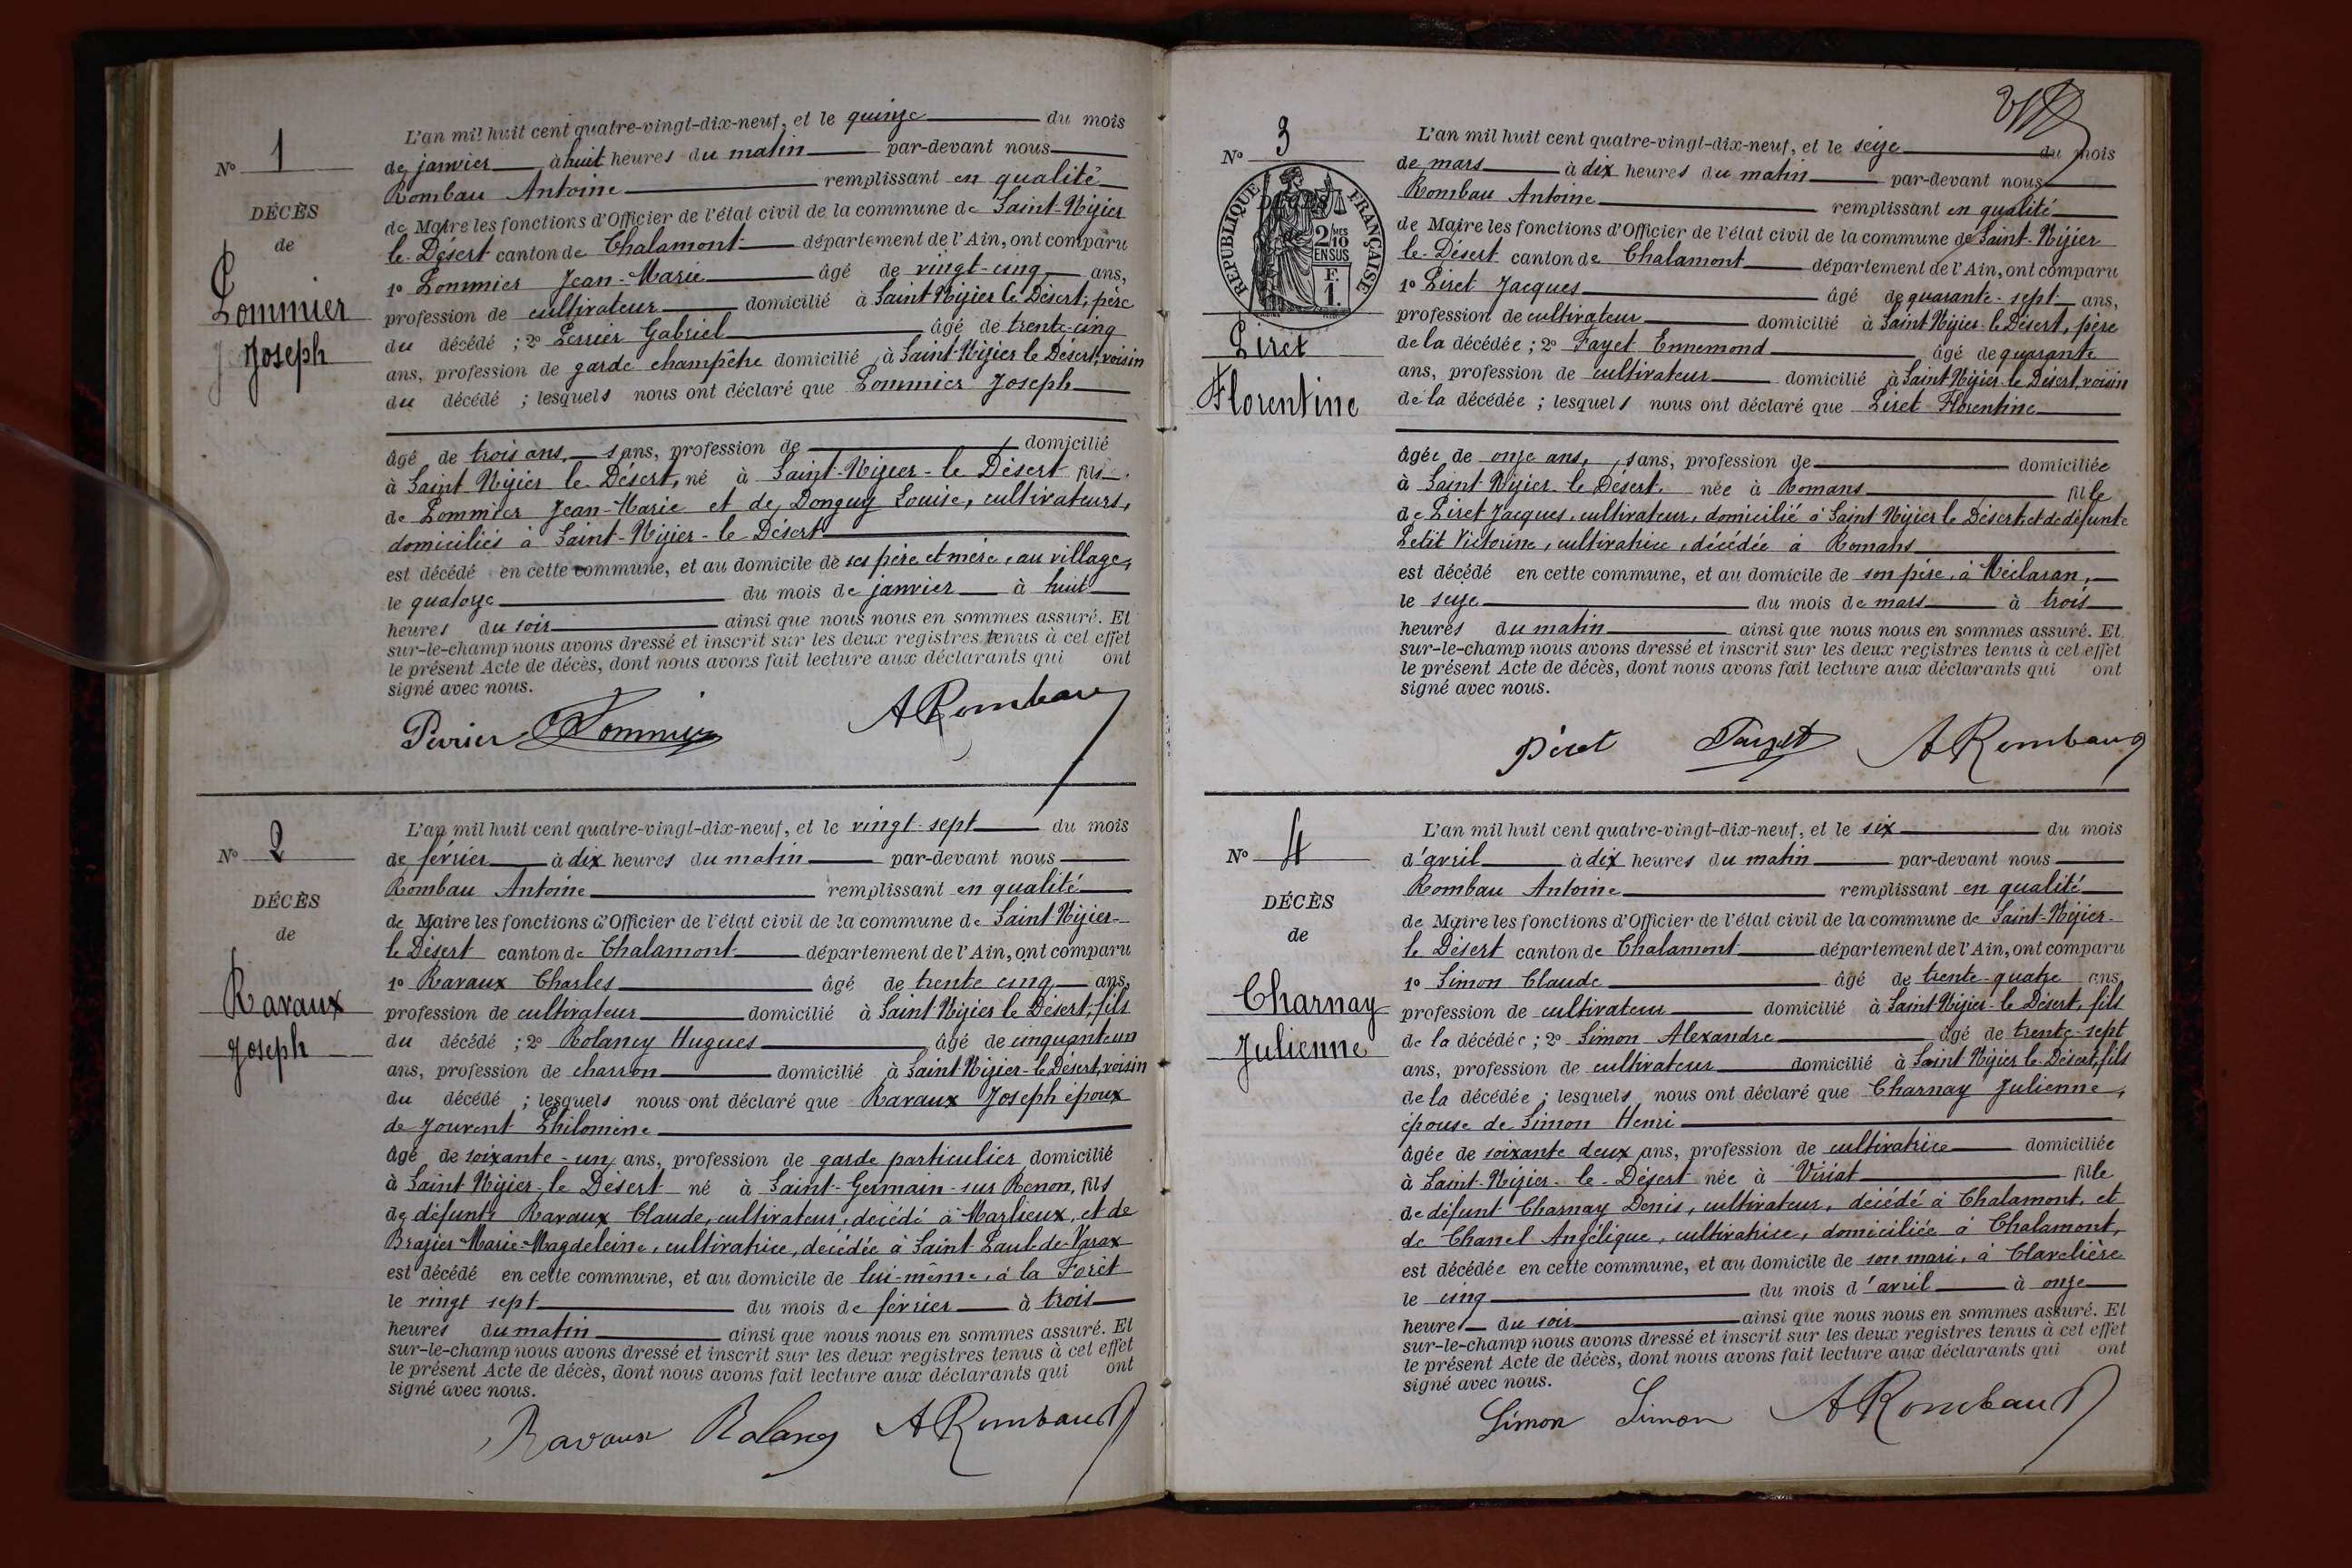 N° 1
DÉCÈS
de
Pommier
Joseph
L'an mil huit cent quatre-vingt-dix-neuf, et le quinze du mois
de janvier à huit heures du matin par-devant nous
Rombau Antoine remplissant en qualité
de Maire les fonctions d'Officier de l'état civil de la commune de Saint-Nizier
le-Désert canton de Chalamont département de l'Ain, ont comparu
1° Pommier Jean-Marie âgé de vingt-cinq ans,
profession de cultivateur domicilié à Saint Nizier le Désert, père
du décédé ; 2° Perrier Gabriel âgé de trente-cinq
ans, profession de garde champêtre domicilié à Saint-Nizier le Désert, voisin
du décédé ; lesquels nous ont déclaré que Pommier Joseph
âgé de trois ans, sans, profession de domicilié
à Saint Nizier le Désert, né à Saint-Nizier-le Désert fils
de Pommier Jean-Marie et de Donguy Louise, cultivateurs,
domiciliés à Saint-Nizier-le Désert
est décédé en cette commune, et au domicile de ses père et mère, au village,
le quatorze du mois de janvier à huit
heures du soir ainsi que nous nous en sommes assuré. Et
sur-le-champ nous avons dressé et inscrit sur les deux registres tenus à cet effet
le présent Acte de décès, dont nous avons fait lecture aux déclarants qui ont
signé avec nous.
Perrier Pommier ARombau
N° 2
DÉCÈS
de
Ravaux
Joseph
L'an mil huit cent quatre-vingt-dix-neuf, et le vingt-sept du mois
de février à dix heures du matin par-devant nous
Rombau Antoine remplissant en qualité
de Maire les fonctions d'Officier de l'état civil de la commune de Saint-Nizier-
le Désert canton de Chalamont département de l'Ain, ont comparu
1° Ravaux Charles âgé de trente cinq ans,
profession de cultivateur domicilié à Saint Nizier le Désert, fils
du décédé ; 2° Rolancy Hugues âgé de cinquante un
ans, profession de charron domicilié à Saint-Nizier-le Désert, voisin
du décédé ; lesquels nous ont déclaré que Ravaux Joseph époux
de Jouvent Philomène
âgé de soixante-un ans, profession de garde particulier domicilié
à Saint Nizier-le Désert né à Saint-Germain-sur Renon, fils
de défunts Ravaux Claude, cultivateur, décédé à Marlieux, et de
Brazier Marie-Magdeleine, cultivatrice, décédée à Saint-Paul-de-Varax
est décédé en cette commune, et au domicile de lui-même, à la Forêt
le vingt sept du mois de février à trois
heures du matin ainsi que nous nous en sommes assuré. Et
sur-le-champ nous avons dressé et inscrit sur les deux registres tenus à cet effet
le présent Acte de décès, dont nous avons fait lecture aux déclarants qui ont
signé avec nous.
Ravaux Rolancy ARombau
N° 3
RÉPUBLIQUE FRANÇAISE
2/10 MES
EN SUS
F.
1.
Piret
Florentine
L'an mil huit cent quatre-vingt-dix-neuf, et le seize du mois
de mars à dix heures du matin par-devant nous
Rombau Antoine remplissant en qualité
de Maire les fonctions d'Officier de l'état civil de la commune de Saint-Nizier
le-Désert canton de Chalamont département de l'Ain, ont comparu
1° Piret Jacques âgé de quarante-sept ans,
profession de cultivateur domicilié à Saint Nizier-le Désert, père
de la décédée ; 2° Fayet Ennemond âgé de quarante
ans, profession de cultivateur domicilié à Saint Nizier-le Désert, voisin
de la décédée ; lesquels nous ont déclaré que Piret Florentine
âgée de onze ans, sans, profession de domiciliée
à Saint Nizier-le Désert, née à Romans fille
de Piret Jacques, cultivateur, domicilié à Saint Nizier le Désert, et de défunte
Petit Victorine, cultivatrice, décédée à Romans
est décédé en cette commune, et au domicile de son père, à Méclaran,
le seize du mois de mars à trois
heures du matin ainsi que nous nous en sommes assuré. Et
sur-le-champ nous avons dressé et inscrit sur les deux registres tenus à cet effet
le présent Acte de décès, dont nous avons fait lecture aux déclarants qui ont
signé avec nous.
Piret Fayet ARombau
N° 4
DÉCÈS
de
Charnay
Julienne
L'an mil huit cent quatre-vingt-dix-neuf, et le six du mois
d'avril à dix heures du matin par-devant nous
Rombau Antoine remplissant en qualité
de Maire les fonctions d'Officier de l'état civil de la commune de Saint-Nizier-
le Désert canton de Chalamont département de l'Ain, ont comparu
1° Simon Claude âgé de trente-quatre ans,
profession de cultivateur domicilié à Saint Nizier-le Désert, fils
de la décédée ; 2° Simon Alexandre âgé de trente-sept
ans, profession de cultivateur domicilié à Saint Nizier le-Désert, fils
de la décédée ; lesquels nous ont déclaré que Charnay Julienne,
épouse de Simon Henri
âgée de soixante deux ans, profession de cultivatrice domiciliée
à Saint-Nizier-le-Désert née à Viriat fille
de défunt Charnay Denis, cultivateur, décédé à Chalamont, et
de Chanel Angélique, cultivatrice, domiciliée à Chalamont,
est décédée en cette commune, et au domicile de son mari, à Clavelière
le cinq du mois d'avril à onze
heures du soir ainsi que nous nous en sommes assuré. Et
sur-le-champ nous avons dressé et inscrit sur les deux registres tenus à cet effet
le présent Acte de décès, dont nous avons fait lecture aux déclarants qui ont
signé avec nous.
Simon Simon ARombau